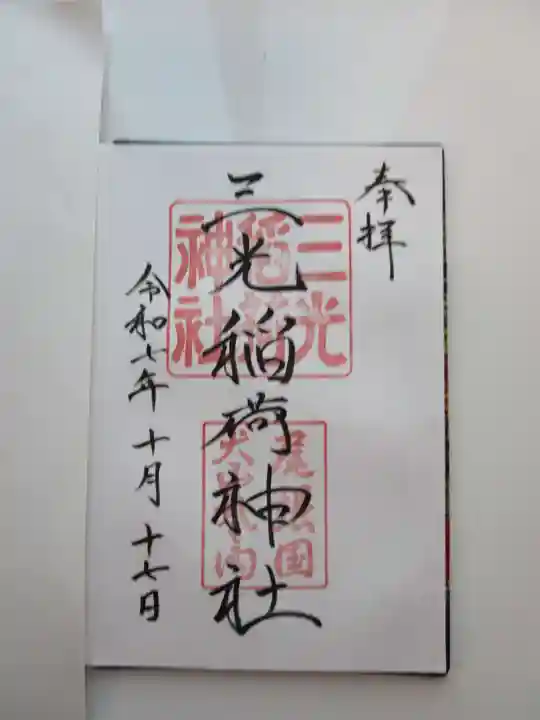 奉拝
三光稲荷神社
三光
稲荷
神社
尾張国
犬山城内
令和七年十月十七日